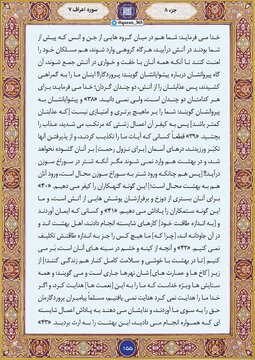 جزء ۸
@fhquran_365
سوره اعراف ۷
خدا می فرماید: شما هم در میان گروه هایی از جن و انس که پیش از
شما بودند در آتش درآیید. هرگاه گروهی وارد شوند، هم مسلکان خود را
لعنت کنند تا آنکه همه آنان با خفت و خواری در آتش جمع شوند، آن
گاه پیروانشان درباره پیشوایانشان گویند: پروردگارا! اینان ما را به گمراهی
کشیدند، پس عذابشان را از آتش دو چندان گردان؛ خدا می فرماید: برای
هر کدامتان دو چندان است، ولی نمی دانید. «۳۸» و پیشوایانشان به
پیروانشان گویند: شما را بر ماهیچ برتری و امتیازی نیست [که عذابتان
کمتر باشد] پس به کیفر آن اعمال زشتی که مرتکب می شدید، عذاب را
بچشید. «۳۹» قطعاً کسانی که آیات ما را تکذیب کردند، و از پذیرفتن آنها
تکبّر ورزیدند، درهای آسمان [برای نزول رحمت] بر آنان گشوده نخواهد
شد، و در بهشت هم وارد نمی شوند مگر آنکه شتر در سوراخ سوزن
درآید!! [پس هم چنانکه ورود شتر به سوراخ سوزن محال است، ورود آنان
هم به بهشت محال است؛] این گونه گنهکاران را کیفر می دهیم. «۴۰»
برای آنان بستری از دوزخ و برفرازشان پوشش هایی از آتش است، و ما
این گونه ستمکاران را پاداش می دهیم. «۴۱» و کسانی که ایمان آوردند
و [به اندازه طاقت خود] کارهای شایسته انجام دادند، اهل بهشت اند و
در آن جاودانه اند، [چرا که] ما هیچ کس را جز به اندازه طاقتش تکلیف
نمی کنیم. «۴۲» و آنچه از کینه و خشم در سینه های آنان است، بر می
کنیم [تا در بهشت با خوشی و سلامت کامل کنار هم زندگی کنند]؛ از
زیر [کاخ ها و عمارت های] شان نهرها جاری است و می گویند: همه
ستایش ها ویژه خداست که ما را به این [نعمت ها] هدایت کرد، و اگر
خدا ما را هدایت نمی کرد هدایت نمی یافتیم، مسلماً پیامبران پروردگارمان
حق را به سوی ما آوردند، و ندایشان می دهند به پاداش اعمال شایسته
ای که همواره انجام می دادید، این بهشت را به ارث بردید. «۴۳»
۱۵۵